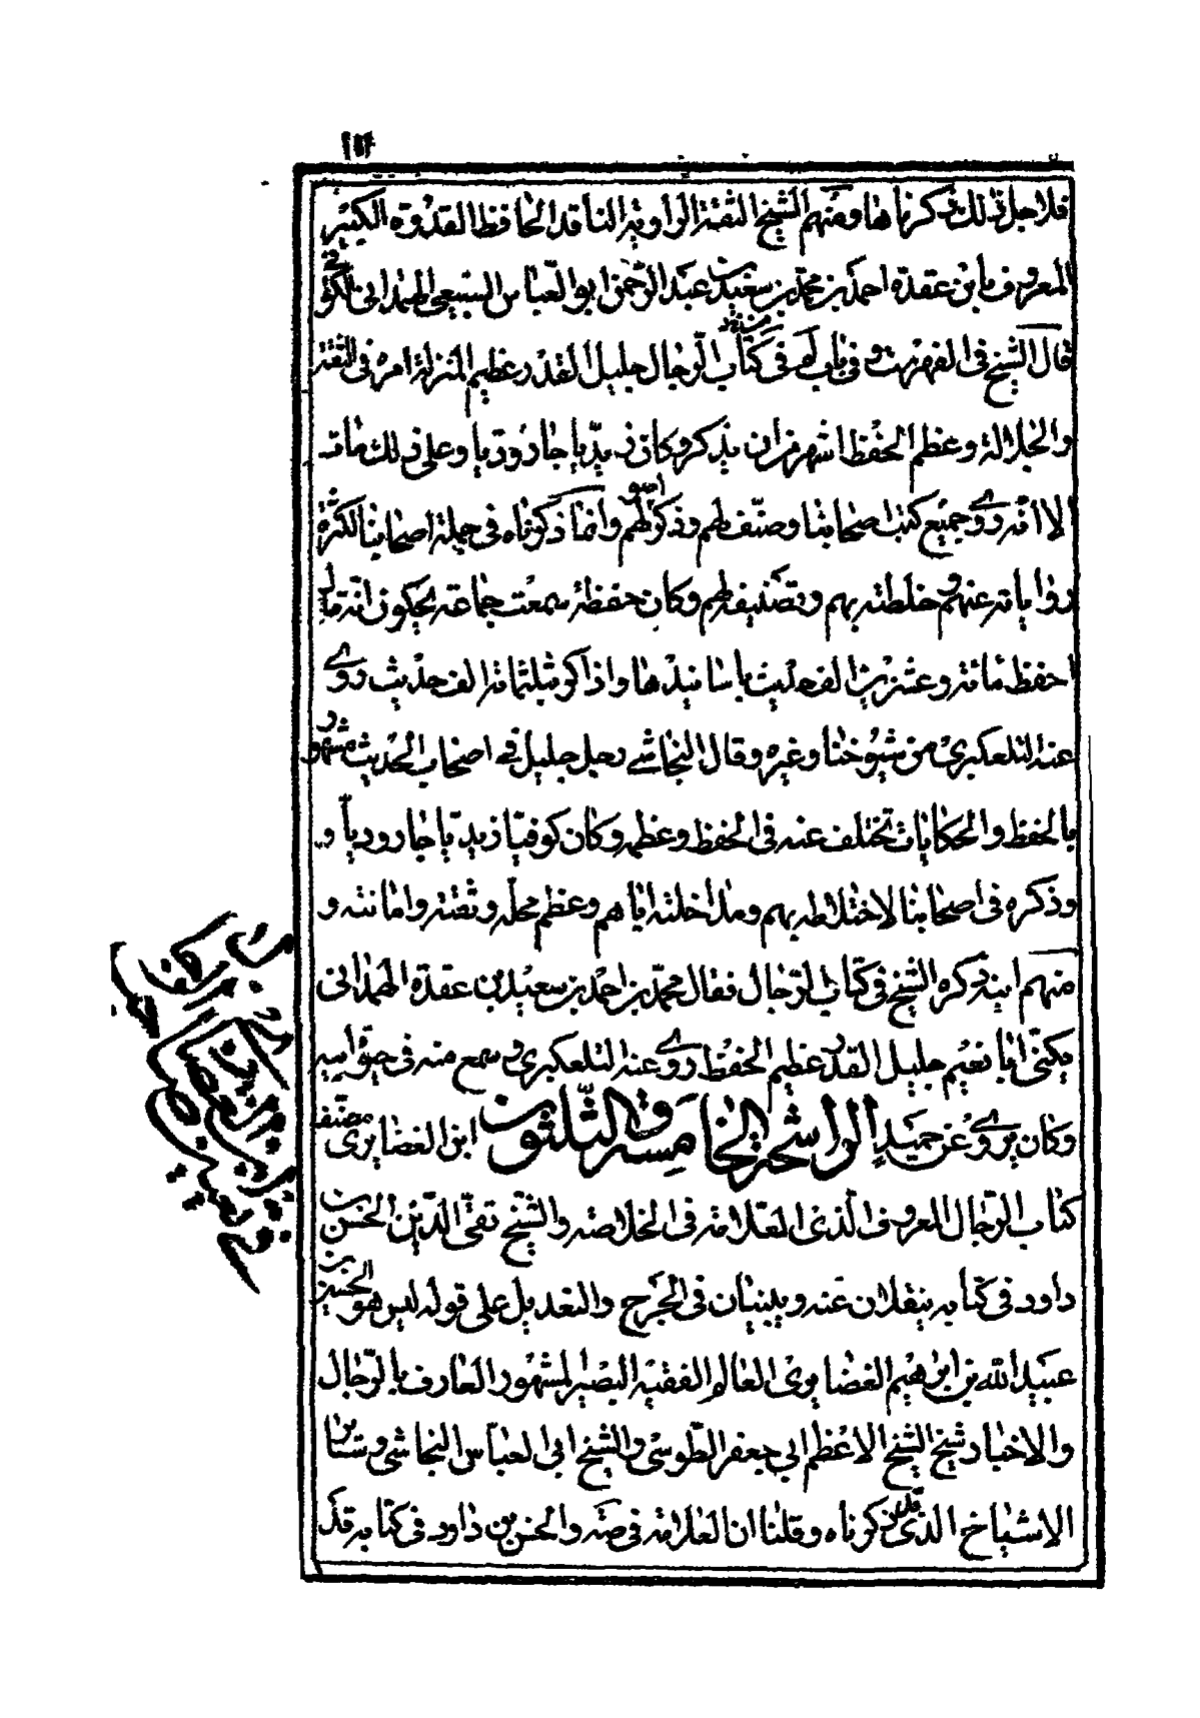 ١١٢
فلاجل ذلك ذكرناها ومنهم الشيخ الثقة الراوية الناقد الحافظ القدوة الكبير
المعروف بابن عقدة احمد بن محمد بن سعيد بن عبد الرحمن ابو العباس السبيعي الهمداني الكوفي
قال الشيخ في الفهرست و في باب لم في كتاب الرجال جليل القدر عظيم المنزلة امره في الثقة
والجلالة وعظم الحفظ اشهر من ان يذكر وكان زيديا جاروديا وعلى ذلك مات
الا انه روى جميع كتب اصحابنا وصنف لهم وذكر اصولهم وانما ذكرناه في جملة اصحابنا لكثرة
رواياته عنهم وخلطته بهم وتصنيفه لهم وكان حفظة سمعت جماعة يحكون انه قال
احفظ مائة وعشرين الف حديث باسانيدها واذاكر بثلثمائة الف حديث روى
عنه التلعكبري من شيوخنا وغيره وقال النجاشي رجل جليل في اصحاب الحديث مشهور
بالحفظ والحكايات تختلف عنه في الحفظ وعظمه وكان كوفيا زيديا جاروديا و
وذكره في اصحابنا لاختلاطه بهم ومداخلته اياهم وعظم محله وثقته وامانته و
منهم ابنه ذكره الشيخ في كتاب الرجال فقال محمد بن احمد بن سعيد بن عقدة الهمداني
يكنى ابا نعيم جليل القدر عظيم الحفظ روى عنه التلعكبري و سمع منه في حيوة ابيه
وكان يروي عن حميد الراشحة الخامسة والثلثون ابن الغضايري مصنف
كتاب الرجال المعروف الذي العلامة في الخلاصة والشيخ تقي الدين الحسن بن
داود في كتابه ينقلان عنه ويبنيان في الجرح والتعديل على قوله ليس هو الحسين بن
عبيد الله بن ابرهيم الغضايري العالم الفقيه البصير المشهور العارف بالرجال
والاخبار شيخ الشيخ الاعظم ابي جعفر الطوسي والشيخ ابي العباس النجاشي وساير
الاشياخ الذين ذكرناه وقلنا ان العلامة في صه والحسن بن داود في كتابه قد